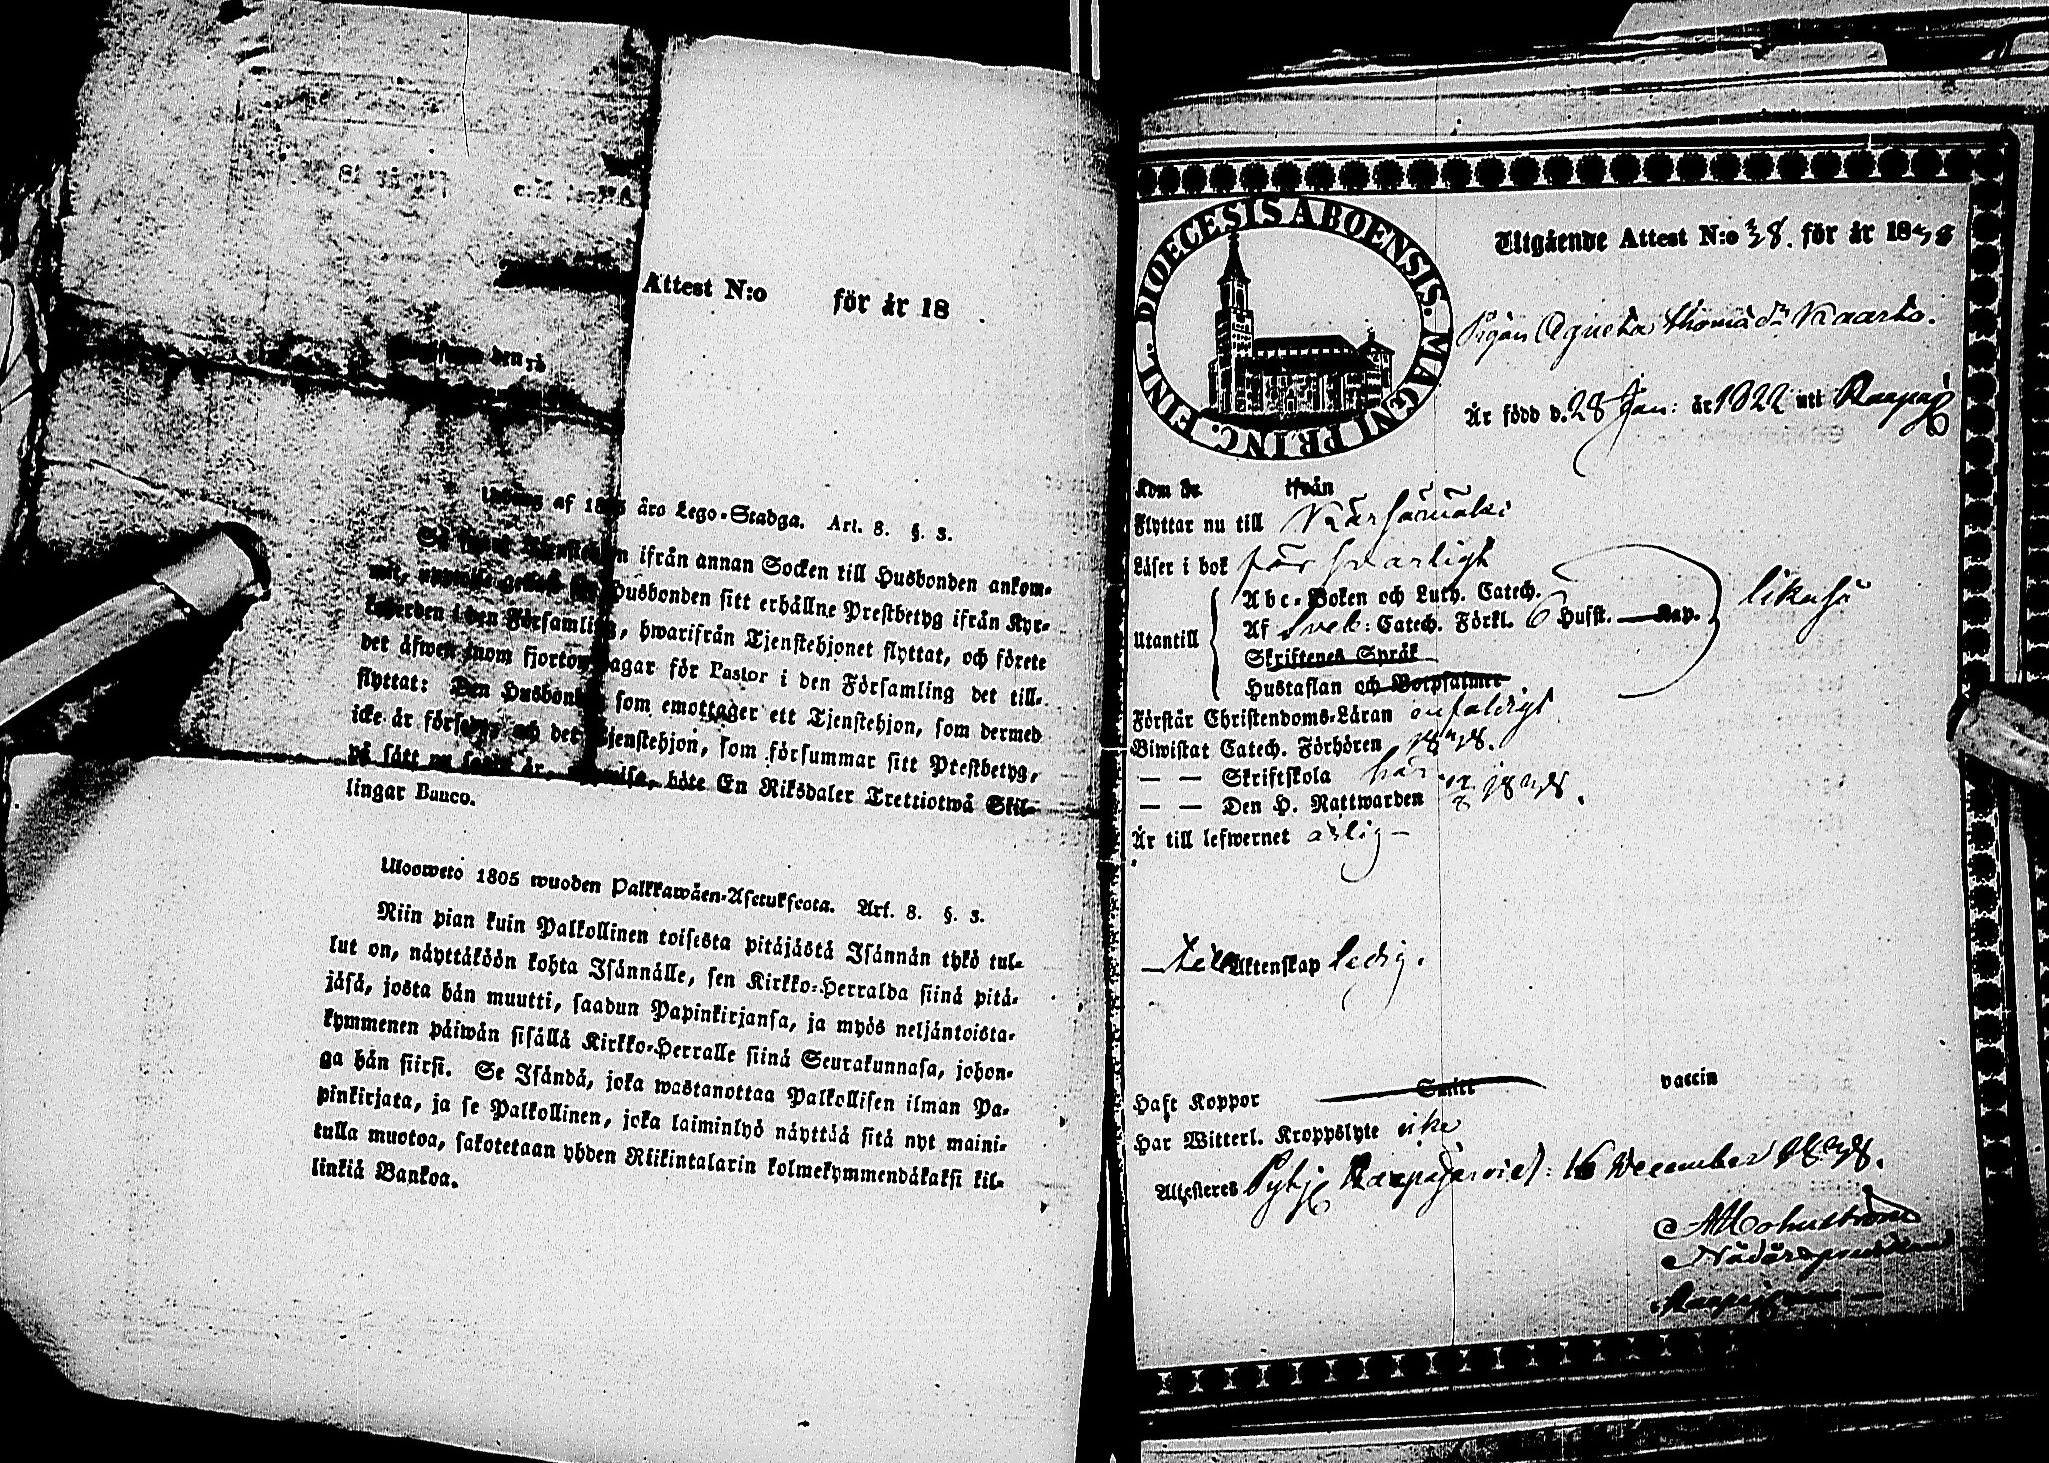 Attest N:o för år 18
Utdrag af 1805 åro Lego-Stadga. Art. 8. §. 3.
ifrån annan Socken till Husbonden ankom-
Husbonden sitt erhållne Prestbetyg ifrån Kyr-
i den Församling, hwarifrån Tjenstehjonet flyttat, och förete
det åfwen inom fjorton dagar för Pastor i den Församling det till-
flyttat: Den Husbonde, som emottager ett Tjenstehjon, som dermed
icke år försedt och det Tjenstehjon, som försummar sitt Prestbetyg,
på sått nu böte En Riksdaler Trettiotwå Skil-
lingar Banco.
Uloosweto 1805 wuoden Palkkawåen-Asetuksesta. Art. 8. §. 3.
Niin pian kuin Palkollinen toisesta pitåjåstå Isånnån tykö tul-
lut on, nåyttåköön kohta Isånnålle, sen Kirkko-Herralda siinå pitå-
jåså, josta hån muutti, saadun Papinkirjansa, ja myös neljåntoista-
kymmenen påiwån sisållå Kirkko-Herralle siinå Seurakunnasa, johon-
ga hån siirsi. Se Isåndå, joka wastanottaa Palkollisen ilman Pa-
pinkirjata, ja se Palkollinen, joka laiminlyö nåyttåå sitå nyt maini-
tulla muotoa, sakotetaan yhden Riikintalarin kolmekymmendåkaksi kil-
linkiå Bankoa.
DIOECESIS ABOENSIS. MAGNI PRINC. FINL.
Utgående Attest N:o 38. för år 1838
Pigan Agneta Thomäd:r Kaarto.
Är född d. 28 Jan: år 1822 uti Karpsj
Kom de ifrån
Flyttar nu till Kärsämäki
Låser i bok försvarligt
Abc-Boken och Luth. Catech.
Utantill Af Sveb: Catech. Förkl. 6 Hufst. Kap. likaså
Skriftenes Språk
Hustaflan och Botpsalmer
Förstår Christendoms-Låran enfaldigt
Biwistat Catech. Förhören 1838.
— — Skriftskola här
— — Den H. Nattwarden 1838.
Är till lefwernet ärlig —
Till Äktenskap ledig.
Haft Koppor Smitt vaccin
Har Witterl. Kroppslyte icke
Attesteras December 1838.